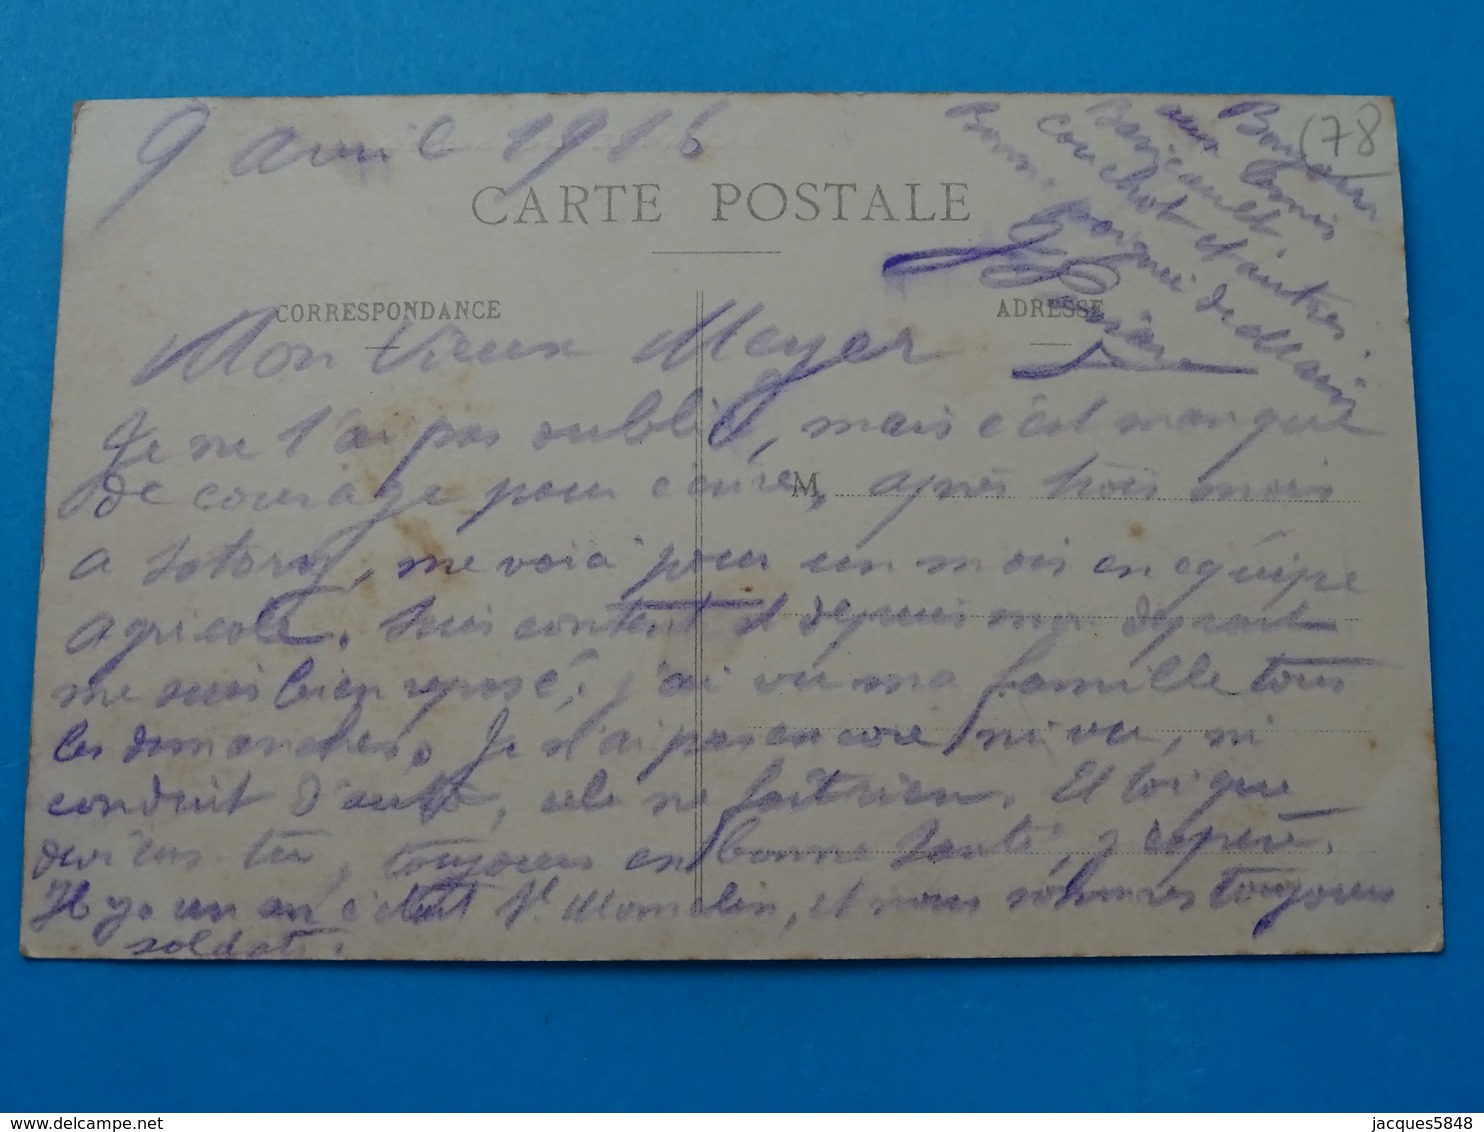 9 avril 1916
(78
CARTE POSTALE
CORRESPONDANCE
ADRESSE
M
Mon Vieux Meyer
Je ne t'ai pas oublié, mais c'est manque
de courage pour écrire, après trois mois
a Satory, me voici pour un mois en équipe
agricole. Suis content et depuis mon départ
me suis bien reposé, j'ai vu ma famille tous
les dimanches. Je n'ai pas encore ni vu, ni
conduit d'auto, cela ne fait rien. Et toi que
deviens-tu, toujours en bonne santé, j'espère.
Il y a un an c'était St Momelin, et nous sommes toujours
soldats.
Bonjour
aux amis
couchot et autres.
Bonne poignée de main
jacques5848